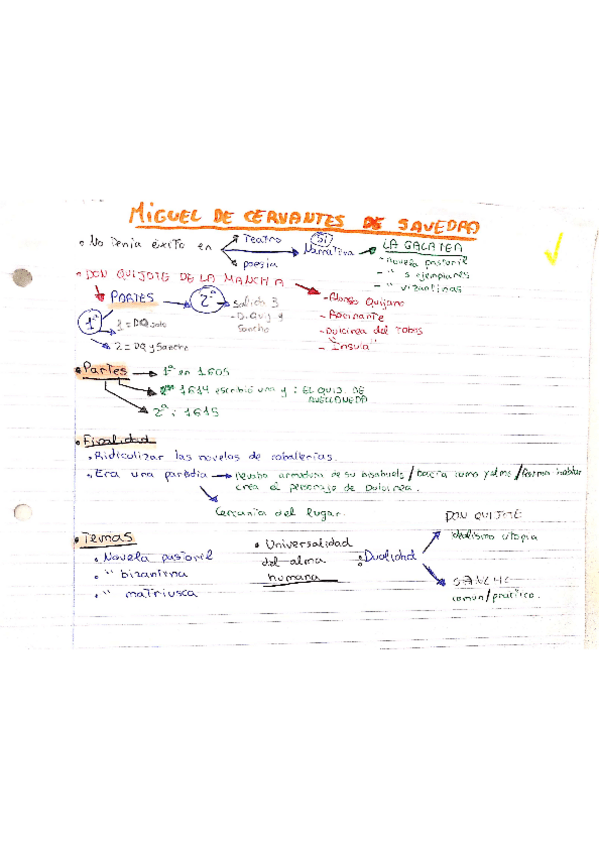 MIGUEL DE CERVANTES DE SAVEDRA
• No Tenía éxito en
Teatro
poesía
Sí
Narrativa
LA GALATEA
- novela pastoril
- " s ejemplares
- " vizantinas
• DON QUIJOTE DE LA MANCHA
PARTES
2ª
salida 3
- D.Qui y
Sancho
- Alonso Quijano
- Rocinante
- Dulcinea del Toboso
- "Insula"
1ª
1 = DQ solo
2 = DQ y Sancho
• Partes
1ª en 1605
1614 escribió una y : EL QUIJ. DE
AVELLANEDA
2ª : 1615
• Finalidad
• Ridiculizar las novelas de caballerías.
• Era una parodia
llevaba armadura de su bisabuelo / bacía como yelmo /
crea el personaje de Dulcinea.
Cercanía del lugar.
• Temas
• Novela pastoril
• " bizantina
• " matriusca
• Universalidad
del alma
humana
• Dualidad
DON QUIJOTE
idealismo utopia
SANCHO
comun/practico.